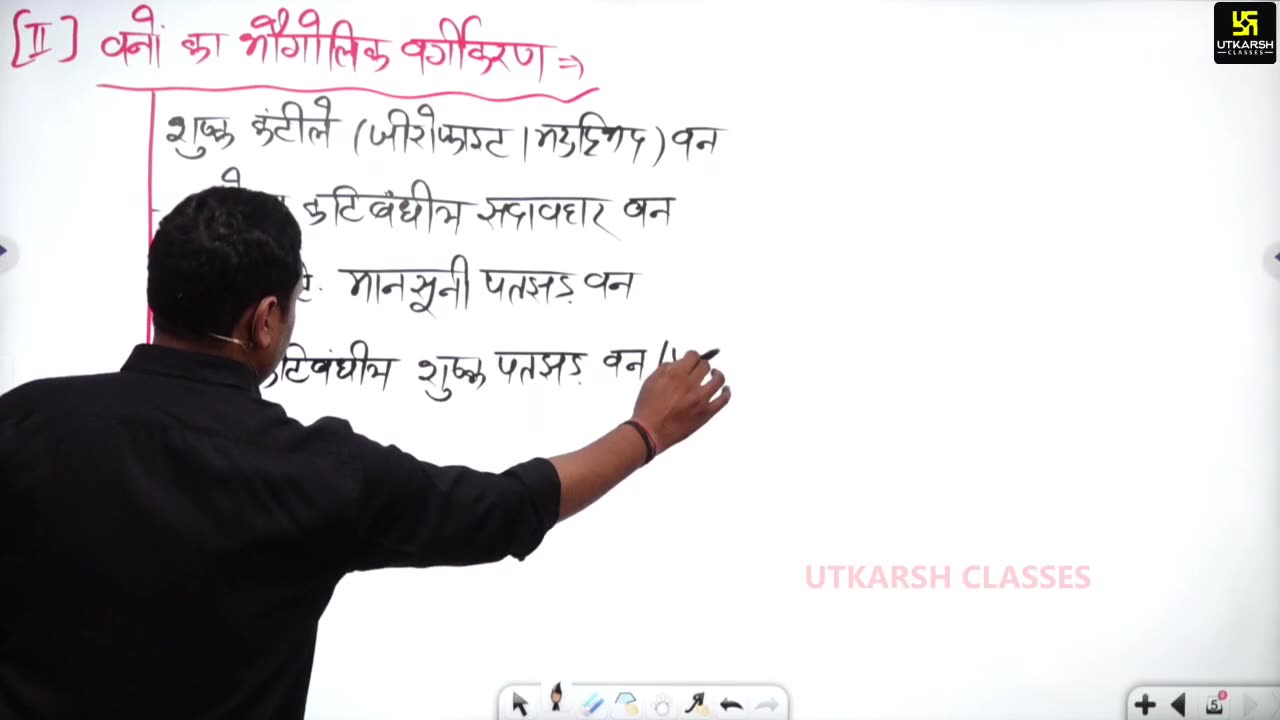 [II] वनों का भौगोलिक वर्गीकरण ⇒
शुष्क कंटीले (जीरोफाइट / मरुद्भिद) वन
कटिबंधीय सदाबहार वन
मानसूनी पतझड़ वन
कटिबंधीय शुष्क पतझड़ वन /
UTKARSH
CLASSES
UTKARSH CLASSES
5